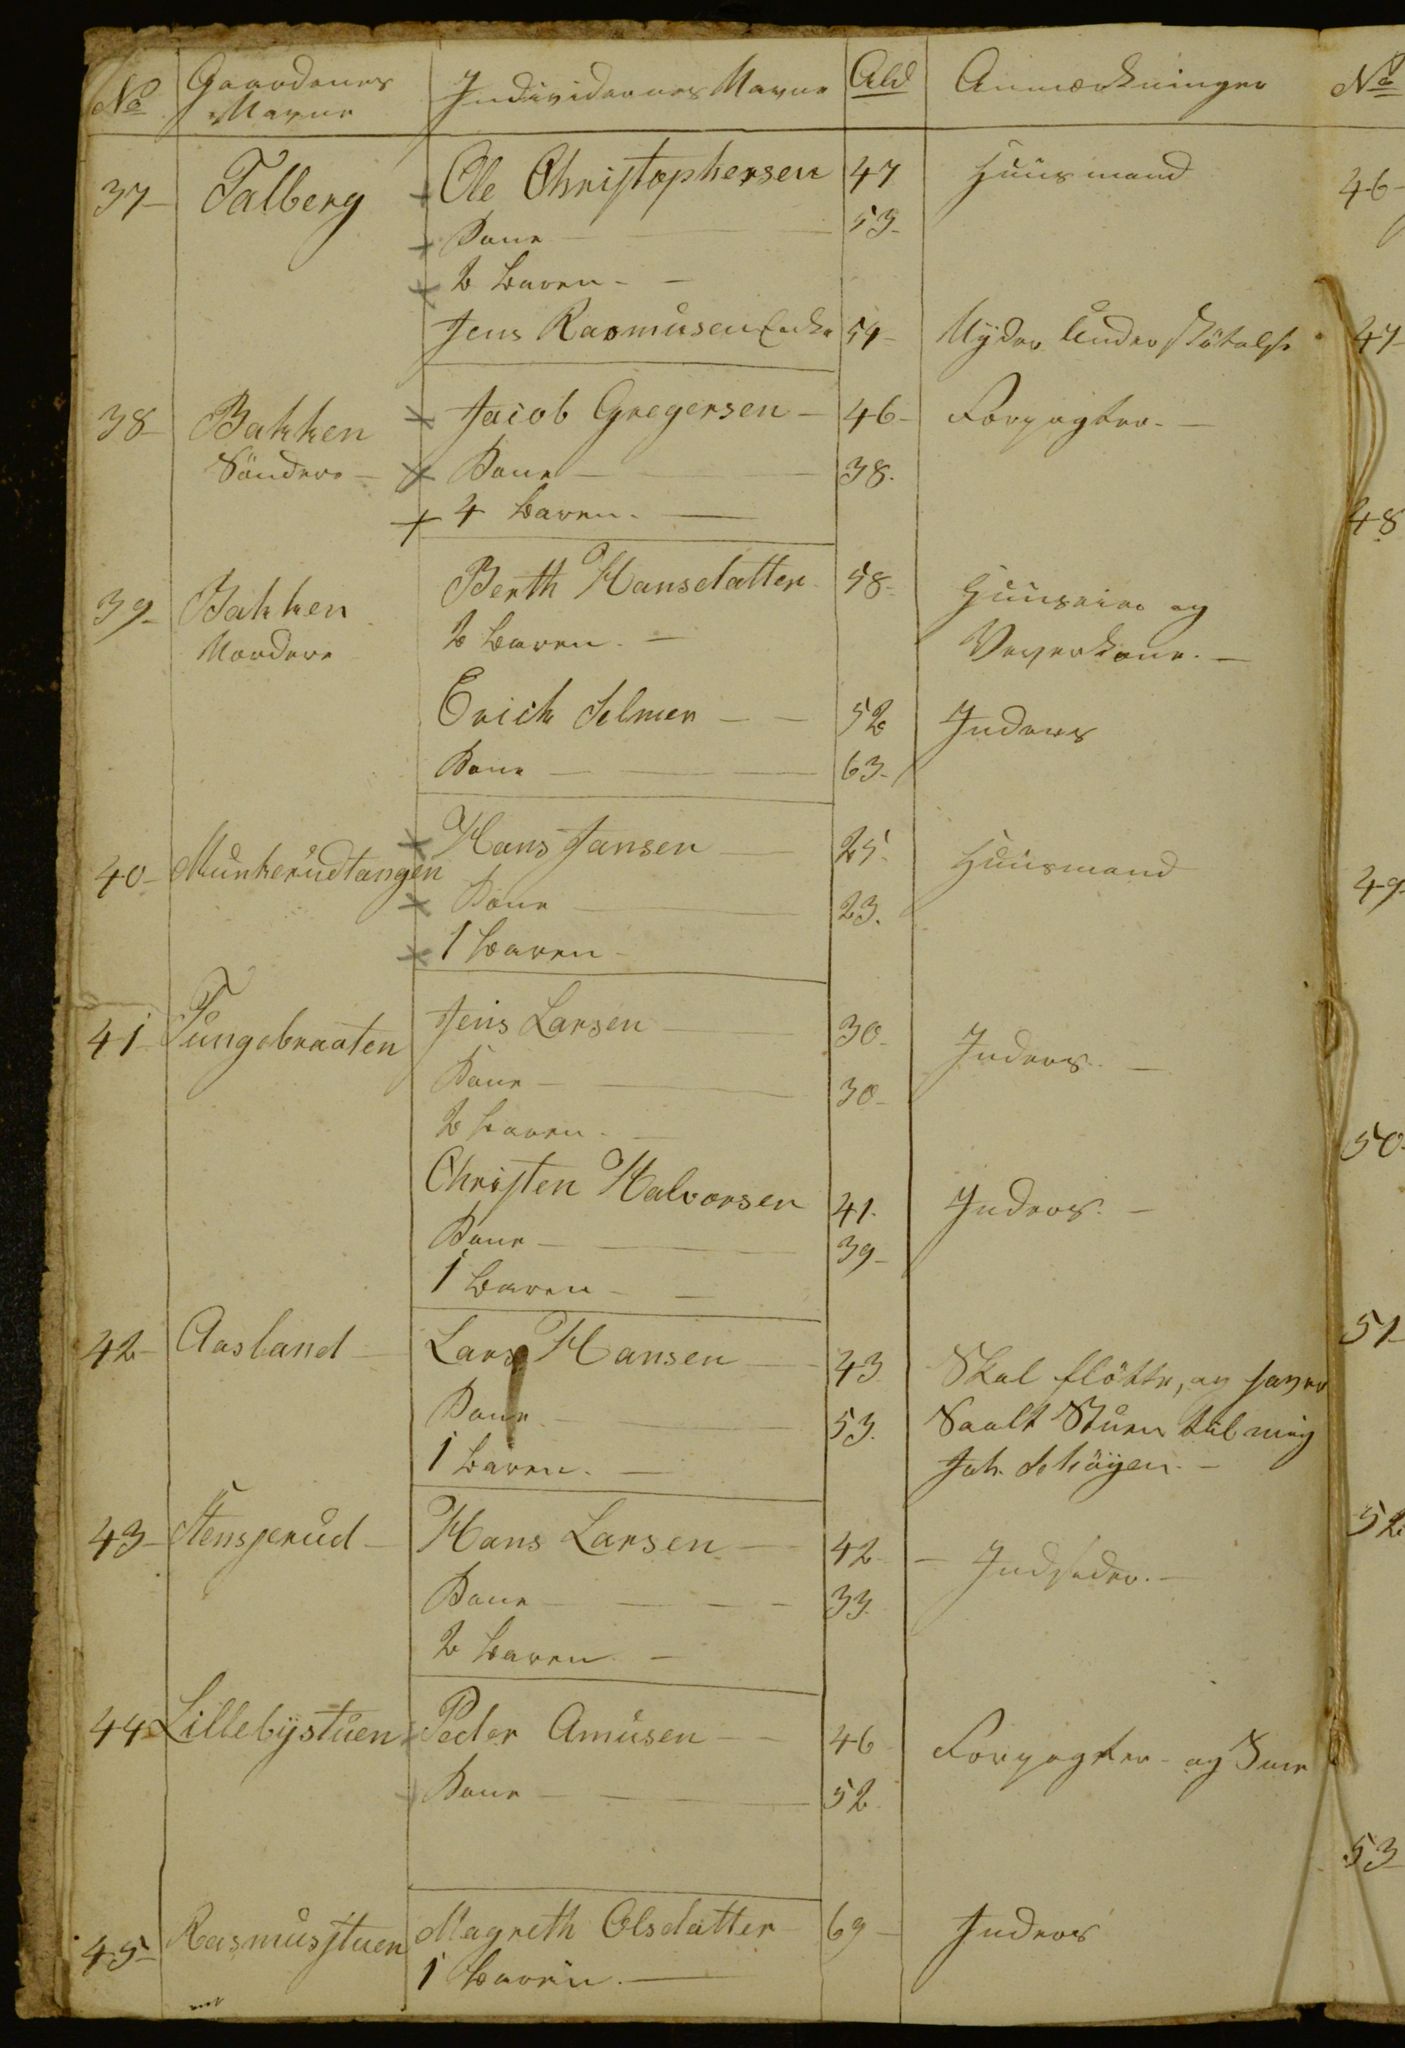 No Gaardenes Navne Individernes Navne Ald Anmærkninger No
37- Talberg Ole Christophersen 47 Huusmand 46-
Kone 53-
2 Børn
Jens Rasmusen Enke 54- Nyder Understøtelse 47-
38- Bakken Jacob Gregersen 46- Forpagter
Söndere Kone 38.
4 Børn 48
39- Bakken Berth Hansdatter 58- Huuseier og
Nordere 2 Børn Veverkone
Erich Selmer 52 Inderst
Kone 63-
40- Munkerudtangen Hans Jansen 25. Huusmand 49-
Kone 23.
1 Børn
41- Tungebraaten Jens Larsen 30- Inderst
Kone 30-
2 Børn 50-
Christen Halvorsen 41. Inderst
Kone 39-
1 Børn
42- Aasland Lars Hansen 43 Skal flötte, og haver 51-
Kone 53. Saalt Stuen til mig
1 Børn Joh. Schöyen
43- Stensrud Hans Larsen 42- Indsider 52
Kone 33
2 Børn
44 Lillebystuen Peder Amusen 46 Forpagter og Smed
Kone 52
53
45- Rasmusstuen Magreth Olsdatter 69- Inderst
1 Børn